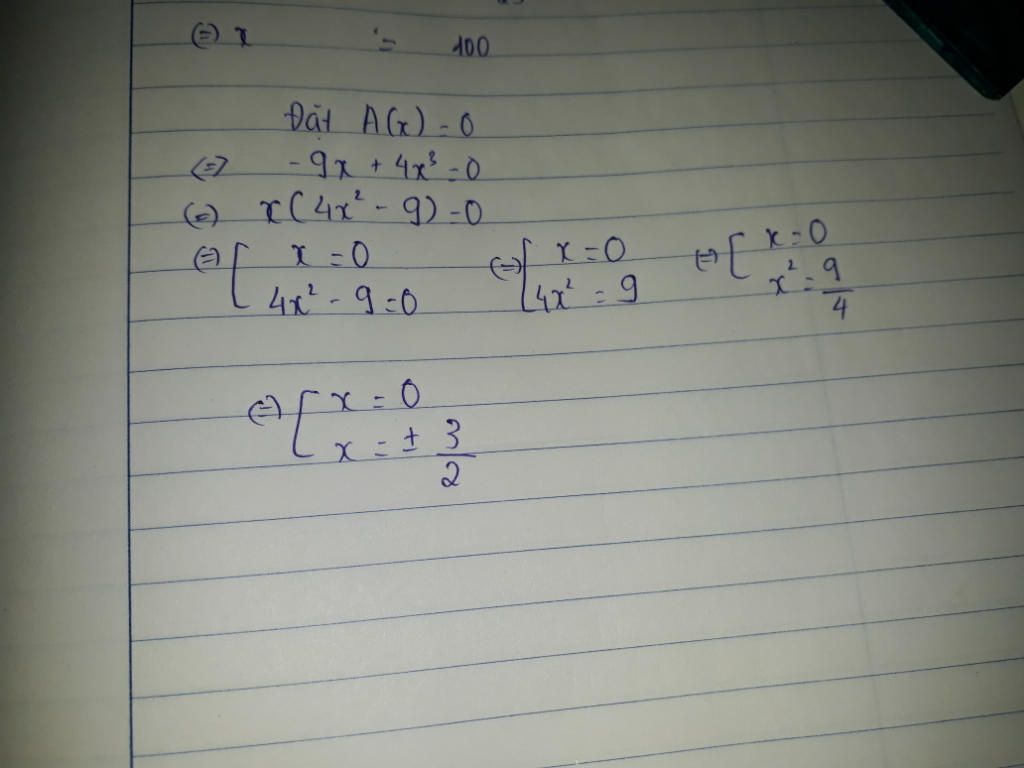 (=) x = 100
Đặt A(x) = 0
(=) - 9x + 4x³ = 0
(=) x(4x² - 9) = 0
(=) [ x = 0 (=) [ x = 0 (=) [ x = 0
4x² - 9 = 0 4x² = 9 x² = 9/4
(=) [ x = 0
x = ± 3/2